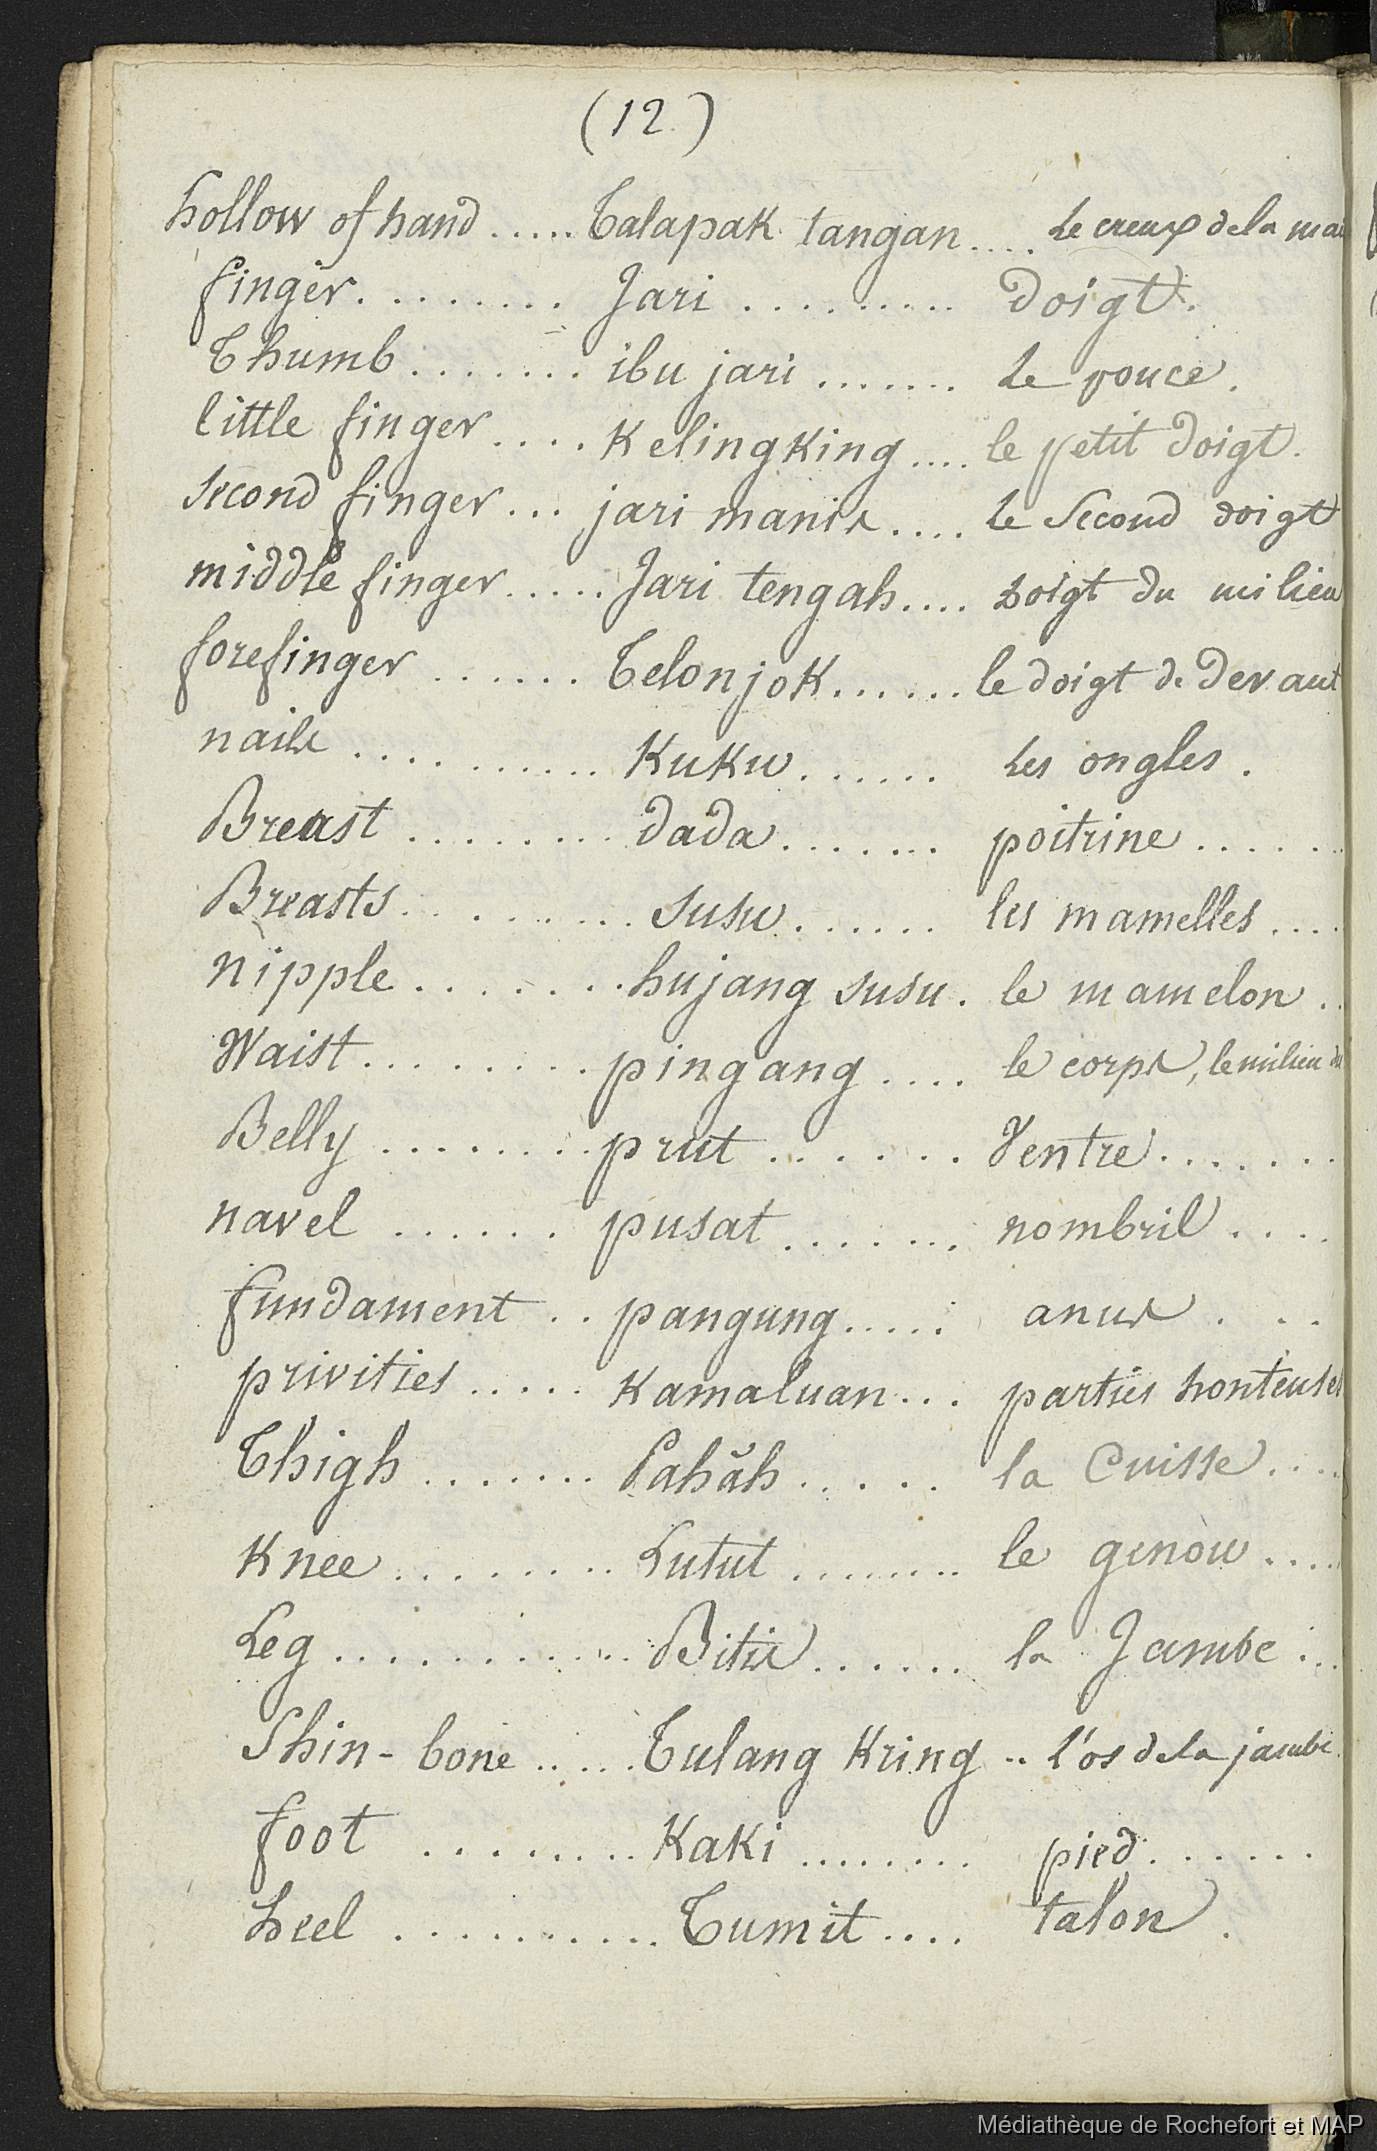 (12.)
hollow of hand ..... Talapak tangan .... Le creux de la mai
finger ........ Jari ......... Doigt.
Thumb ....... ibu jari ....... Le pouce.
little finger .... Kelingking .... le petit doigt.
second finger ... jari manis .... Le second doigt
middle finger ..... Jari tengah .... Doigt du milieu
forefinger ...... Telonjok ...... le doigt de devant
nails .......... Kuku ...... Les ongles.
Breast ........ dada ....... poitrine .....
Breasts ........ susu ...... les mamelles ....
nipple ....... hujang susu . le mamelon ..
Waist ........ pingang .... le corps, le milieu du
Belly ........ prut ...... Ventre .......
navel ...... pusat ....... nombril ....
fundament .. pangung ..... anus ...
privities ..... Kamaluan ... parties honteuses
Thigh ....... Pahăh ..... la Cuisse ....
Knee ........ Lutut ........ le genou ....
Leg ........... Bitis ...... la Jambe ...
Shin-bone ..... Tulang Kring .. l'os de la jambe
foot ........ Kaki ........ pied ......
heel .......... Tumit .... talon.
Médiathèque de Rochefort et MAP